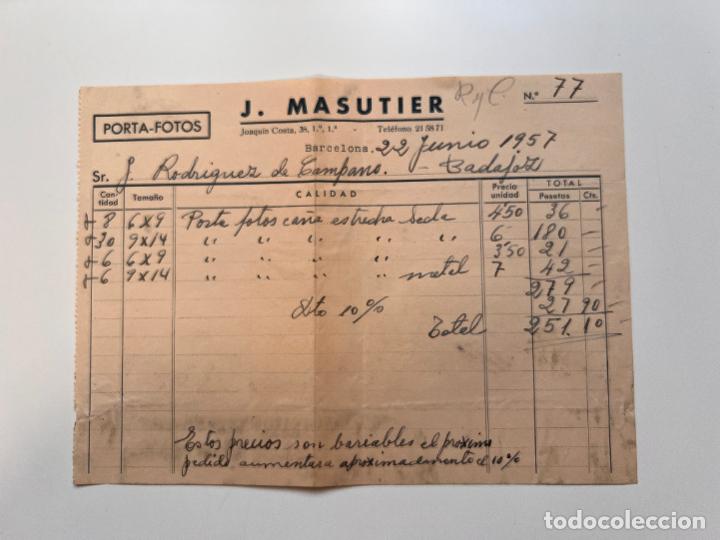 J. MASUTIER
R y C.
N.º 77
PORTA-FOTOS
Joaquín Costa, 38, 1.º, 1.ª - Teléfono 21 58 71
Barcelona, 22 Junio 1957
Sr. J. Rodriguez de Campano. - Badajoz
Cantidad Tamaño CALIDAD Precio unidad TOTAL Pesetas Cts.
8 6x9 Porta fotos caña estrecha Seda 4'50 36 -
30 9x14 " " " " " 6 - 180 -
6 6x9 " " " " 3'50 21 -
6 9x14 " " " " metal 7 42 -
279 -
Dto 10% 27 90
Total 251. 10
Estos precios son bariables el proximo
pedido aumentara aproximadamente el 10%
todocoleccion
todocoleccion.net